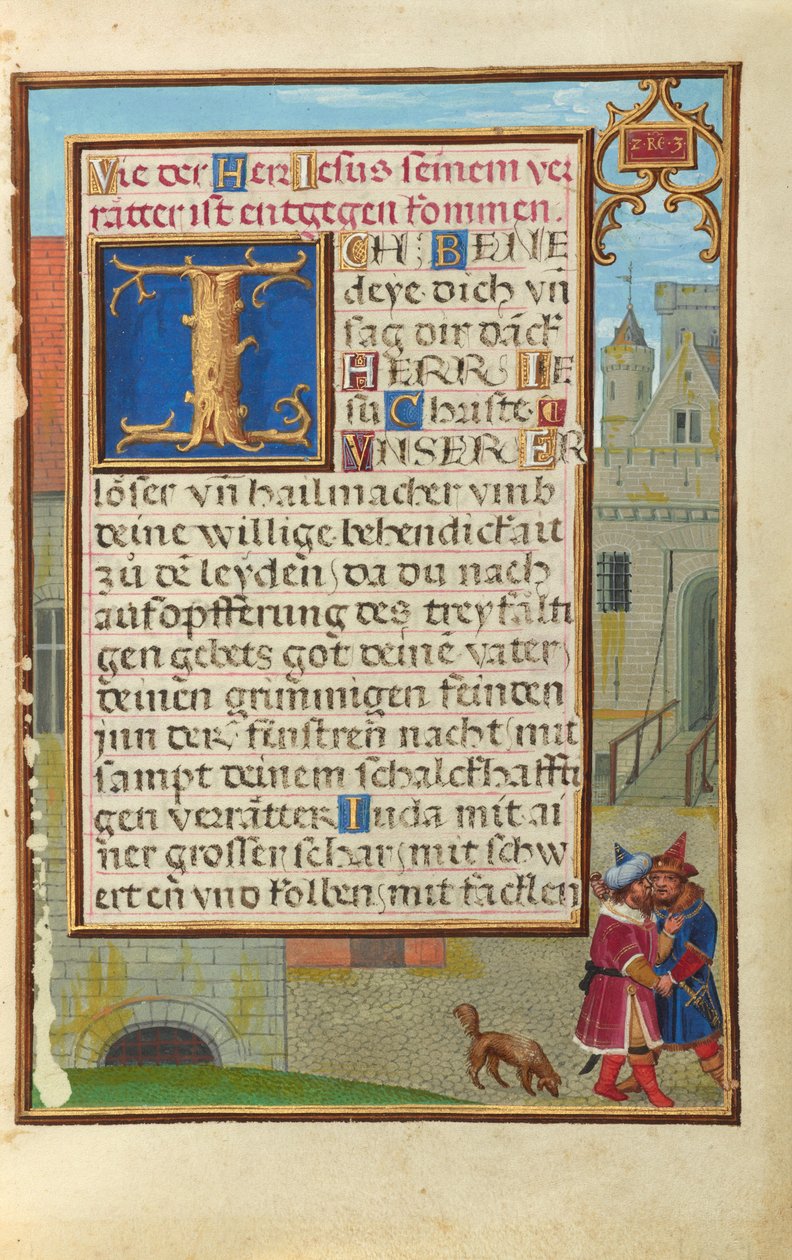 ·2·RE·3·
Vie der Herr Iesus seinem ver
rätter ist entgegen kommen.
ICH BENE
deye dich vn̄
sag dir dāck
HERR IE
su Christe
VNSER ER
löser vn̄ hailmacher vmb
deine willige behendickait
zů dē leyden, da du nach
aufopfferung des treyfälti
gen gebets got deinē vater,
deinen grimmigen feinden
jnn der finstreñ nacht, mit
sampt deinem schalckhaffti
gen verrätter Iuda mit ai
ner grosser schar, mit schw
erten vnd kolben, mit facklen